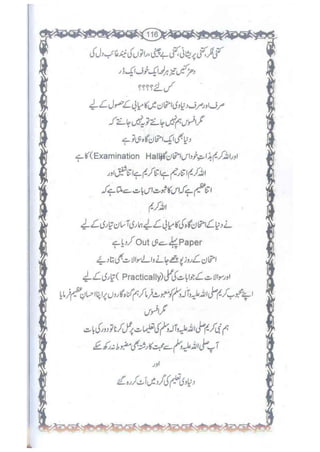 116
کتنی فکر، کتنی پریشانی، کتنی بے چینی، راتوں کی نیند غائب دل کی
دھڑکنیں تیز ہر لمحہ ایک خوف ایک ڈر
کس لئے؟؟؟؟
صرف اور صرف دنیاوی امتحان میں کامیابی کے حصول کے لیے
مگر افسوس ہم نہیں جانتے تو یہ نہیں جانتے کہ
دنیا بھی ایک امتحان گاہ ہی تو ہے
اور اللہ کریم بذات خود اس امتحان گاہ (Examination Hall) کا ہے
اللہ کریم اتنا رحیم ہے اتنا کریم ہے اتنا شفیق اور
اتنا عظیم ہے کہ اس کا ثبوت اس بات سے ملتا ہے کہ
اللہ کریم
نے دنیا کے امتحان گاہ کی کامیابی کے لیے ہماری آسان تیاری کے لیے
Paper پہلے سے ہی Out کر دیا ہے
امتحان کے روز پوچھے جانے والے سوالات بھی بتا دیئے
اور سوالات کے جوابات کی عملی (Practically) تیاری کے لیے
اپنے محبوب کریم صلی اللہ علیہ وآلہ وسلم کو مبعوث فرما کر ہم گناہ گاروں پر اپنا احسان عظیم فرمایا
مگر افسوس
ہم نبی کریم صلی اللہ علیہ وآلہ وسلم کی تعلیمات پر عمل کرنا تو دور کی بات
آپ صلی اللہ علیہ وسلم سے محبت کا رشتہ بھی مضبوط نہ رکھ سکے
اور
دنیاوی تعلیم کی گرد میں اَٹ کر رہ گئے